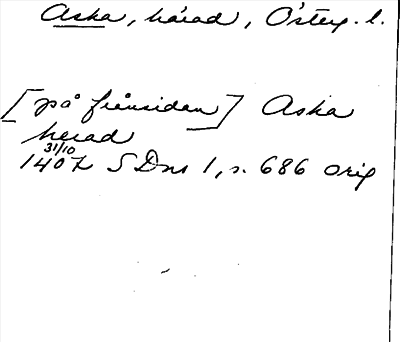 Aska, härad, Österg. l.
[på frånsidan] Aska
herad
31/10
1407 SDns 1, s. 686 orig